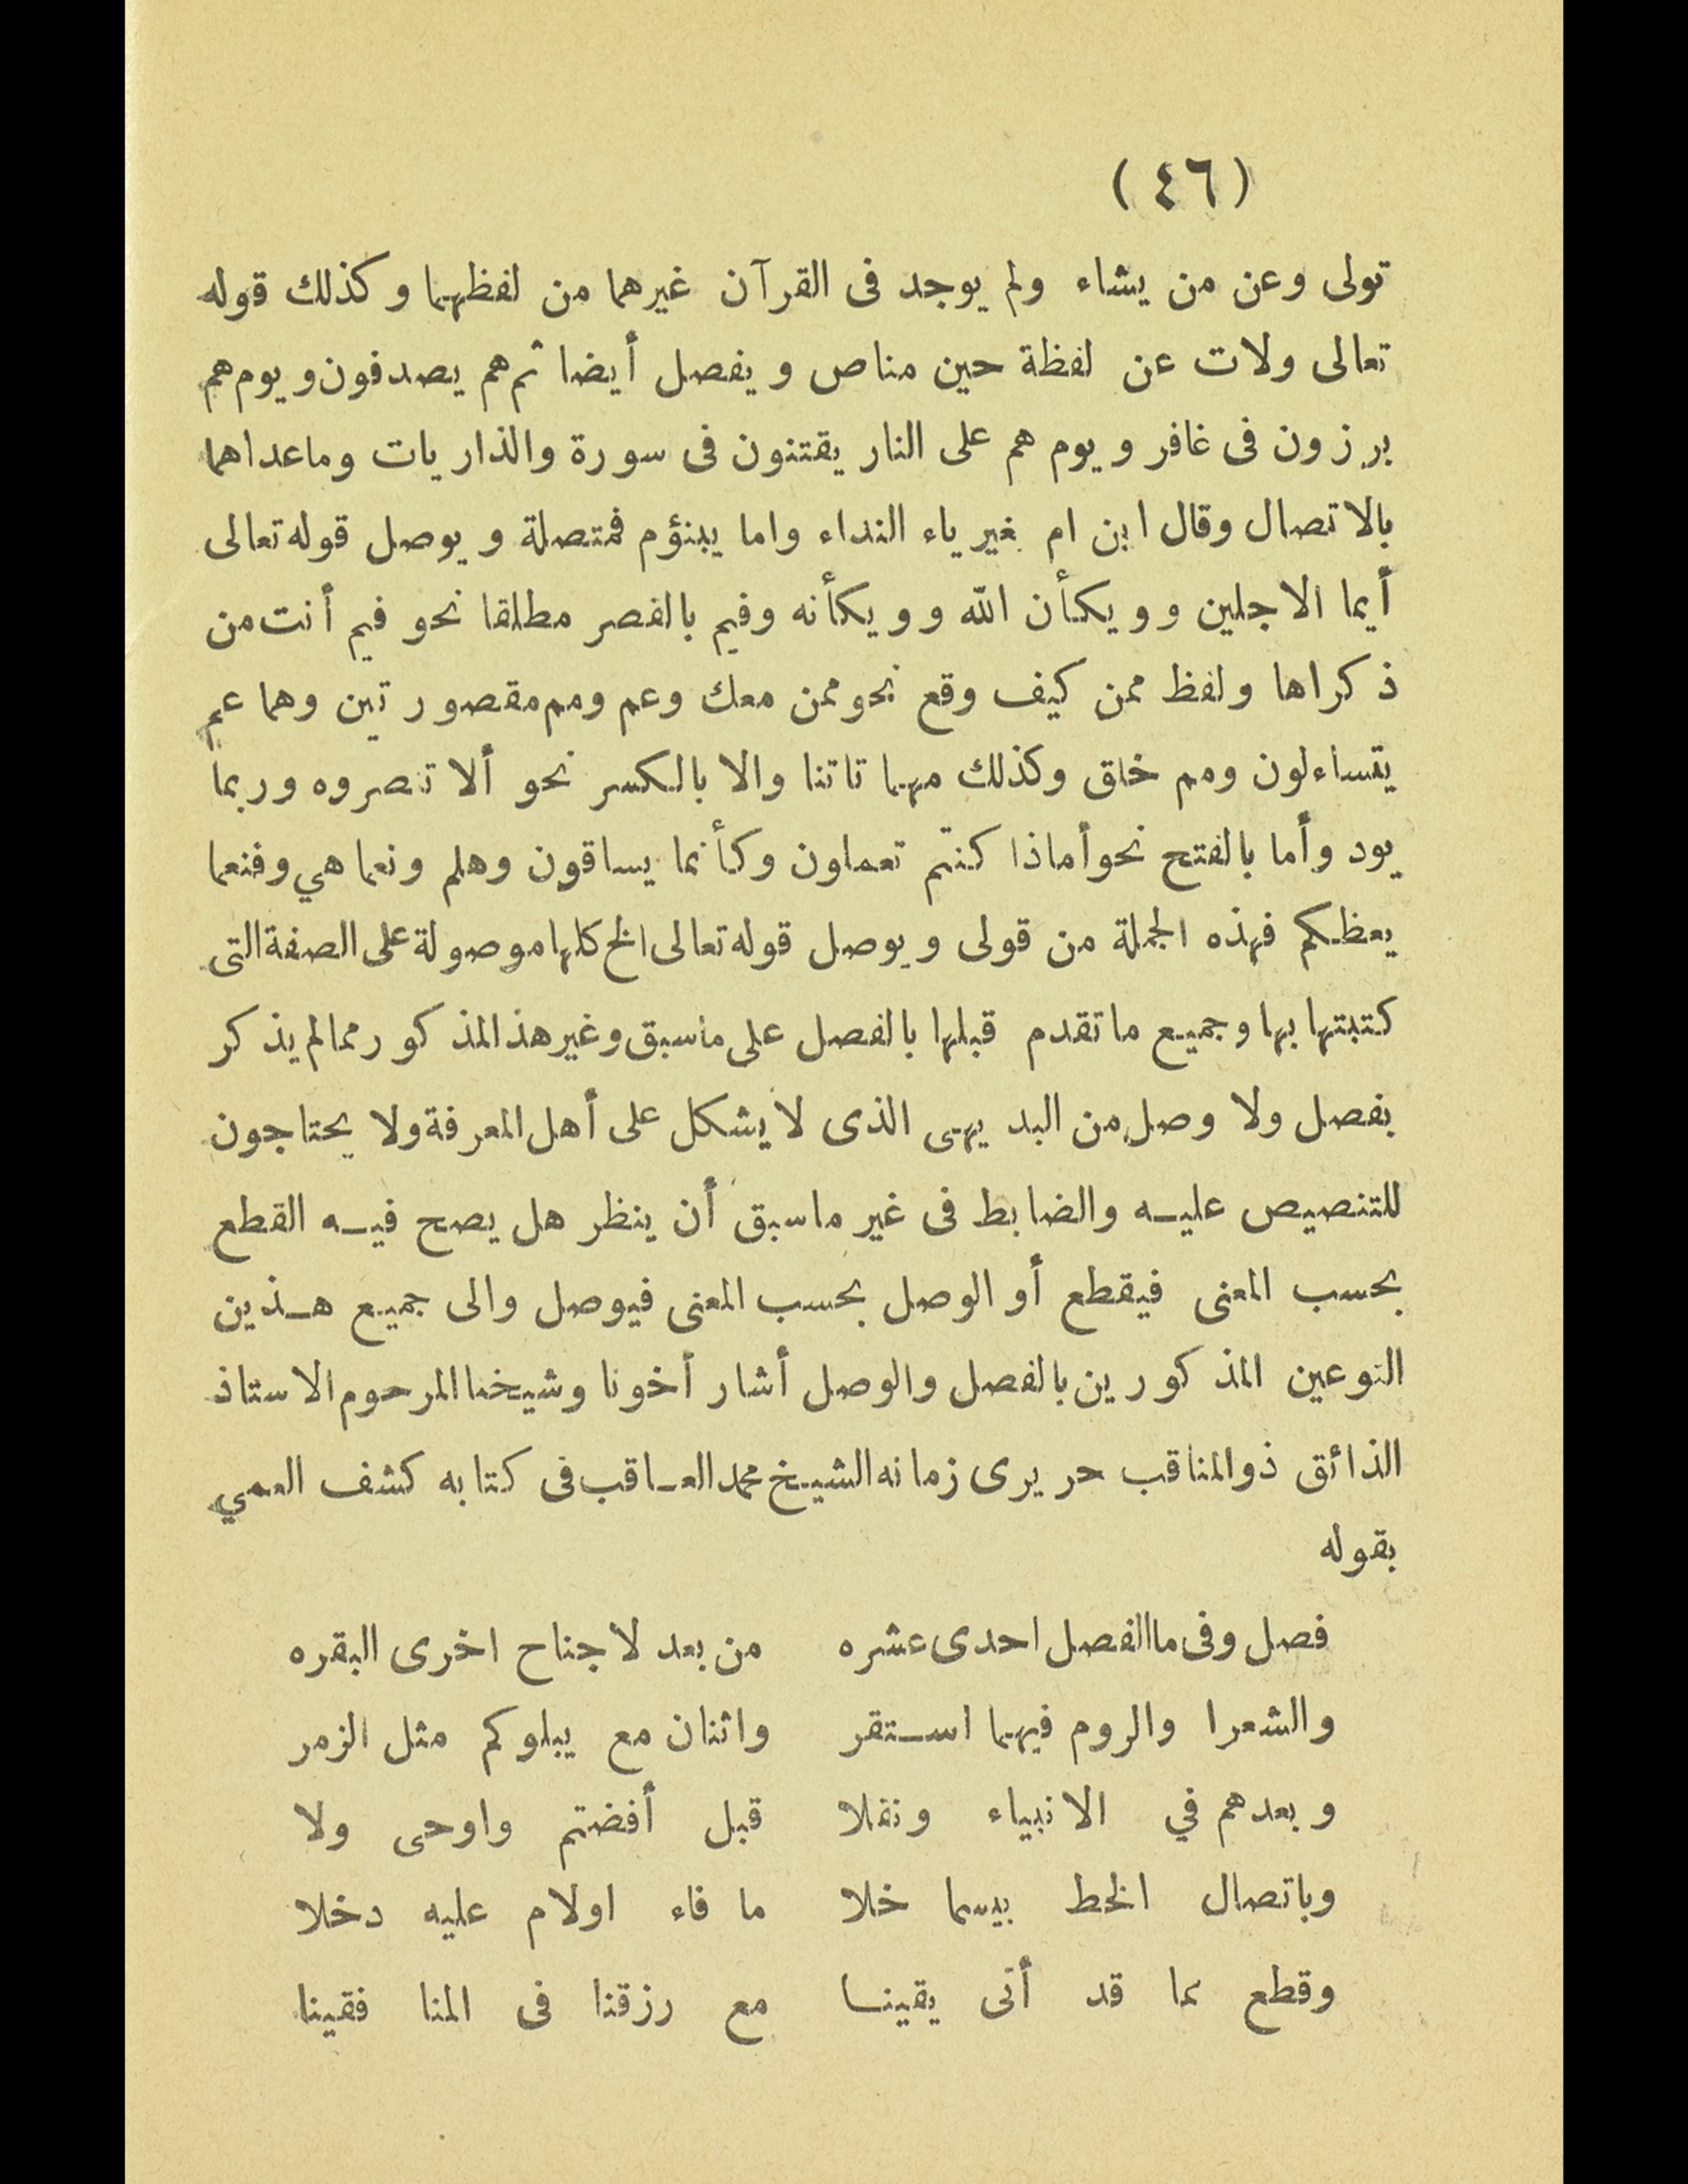 (٤٦)
تولى وعن من يشاء ولم يوجد فى القرآن غيرهما من لفظهما وكذلك قوله
تعالى ولات عن لفظة حين مناص ويفصل أيضا ثم هم يصدفون ويوم هم
برزون فى غافر ويوم هم على النار يفتنون فى سورة والذاريات وماعداهما
بالاتصال وقال ابن ام بغير ياء النداء واما يبنؤم فمتصلة ويوصل قوله تعالى
أيما الاجلين وويكأن الله وويكأنه وفيم بالقصر مطلقا نحو فيم أنت من
ذكراها ولفظ ممن كيف وقع نحو ممن معك وعم ومم مقصورتين وهما عم
يتساءلون ومم خلق وكذلك مهما تاتنا والا بالكسر نحو ألا تنصروه وربما
يود وأما بالفتح نحو أماذا كنتم تعملون وكأنما يساقون وهلم ونعما هي وفنعما
يعظكم فهذه الجملة من قولى ويوصل قوله تعالى الخ كلها موصولة على الصفة التى
كتبتها بها وجميع ماتقدم قبلها بالفصل على ماسبق وغير هذ المذكور ممالم يذكر
بفصل ولا وصل من البديهى الذى لا يشكل على أهل المعرفة ولا يحتاجون
للتنصيص عليه والضابط فى غير ماسبق أن ينظر هل يصح فيه القطع
بحسب المعنى فيقطع أو الوصل بحسب المعنى فيوصل والى جميع هذين
النوعين المذكورين بالفصل والوصل أشار أخونا وشيخنا المرحوم الاستاذ
الذائق ذوالمناقب حريرى زمانه الشيخ محمد العاقب فى كتابه كشف العمي
بقوله
فصل وفى ماالفصل احدى عشره من بعد لاجناح اخرى البقره
والشعرا والروم فيهما استقر واثنان مع يبلوكم مثل الزمر
وبعدهم في الانبياء ونقلا قبل أفضتم واوحى ولا
وباتصال الخط بيسما خلا ما فاء اولام عليه دخلا
وقطع مما قد أتى يقينا مع رزقنا فى المنا فقينا